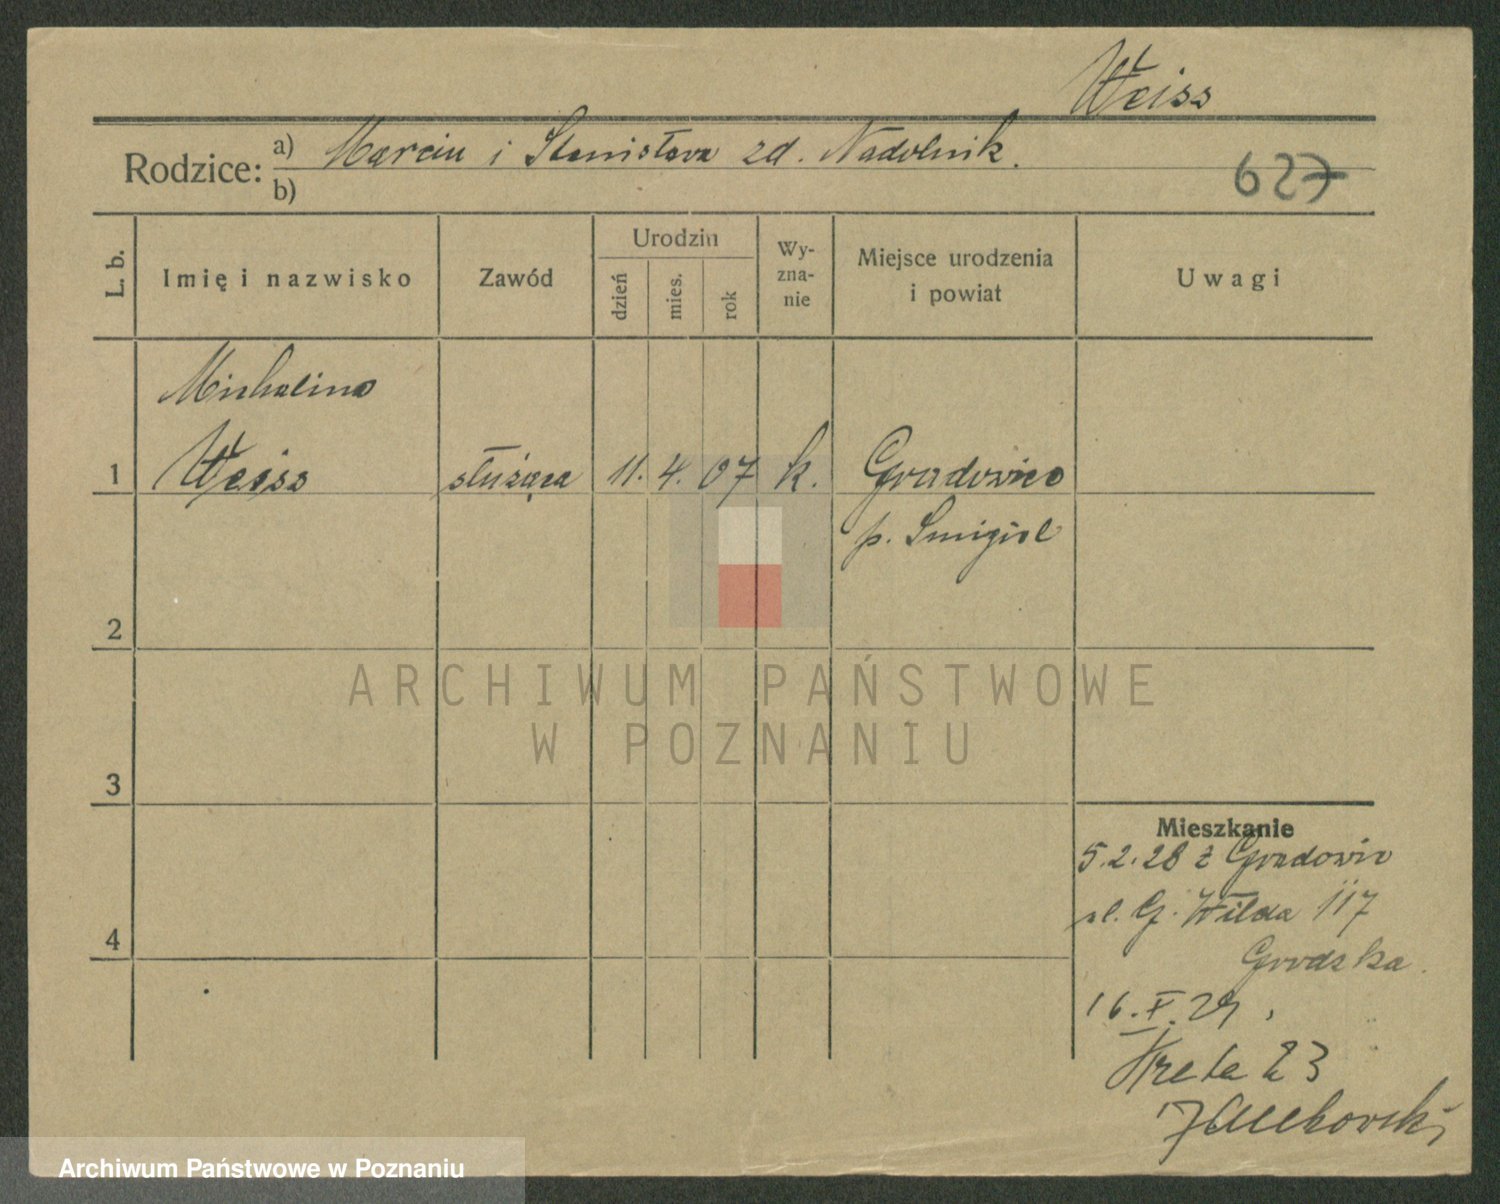 Weiss
Rodzice: a) Marcin i Stanisława zd. Nadolnik.
b)
627
L. b.
Imię i nazwisko
Zawód
Urodzin
dzień
mies.
rok
Wy-
zna-
nie
Miejsce urodzenia
i powiat
Uwagi
Michalina
1 Weiss służąca 11. 4. 07 k. Gradowice
p. Śmigiel
2
3
4
Mieszkanie
5.2.28 z Gradowic
ul. G. Wilda 117
Grodzka.
16.X.29,
Kreta 23
ARCHIWUM PAŃSTWOWE
W POZNANIU
Archiwum Państwowe w Poznaniu